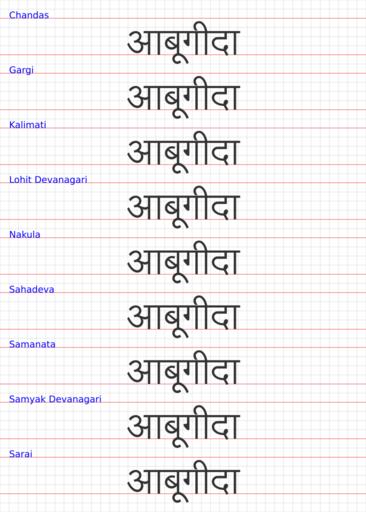 Chandas
आबूगीदा
Gargi
आबूगीदा
Kalimati
आबूगीदा
Lohit Devanagari
आबूगीदा
Nakula
आबूगीदा
Sahadeva
आबूगीदा
Samanata
आबूगीदा
Samyak Devanagari
आबूगीदा
Sarai
आबूगीदा